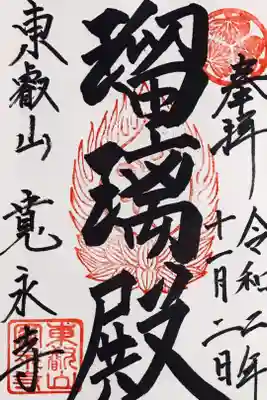 奉拝
令和二年
十一月二日
瑠璃殿
東叡山
寛永寺
東叡山